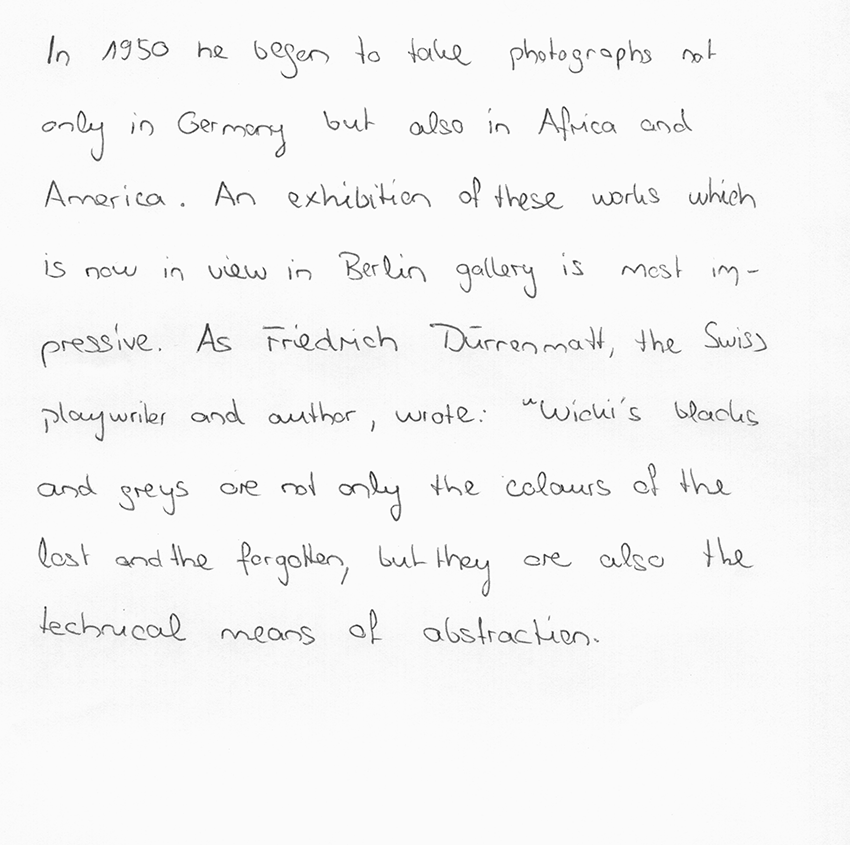 In 1950 he began to take photographs not
only in Germany but also in Africa and
America. An exhibition of these works which
is now in view in Berlin gallery is most im-
pressive. As Friedrich Dürrenmatt, the Swiss
playwriter and author, wrote: "Wicki's blacks
and greys are not only the colours of the
lost and the forgotten, but they are also the
technical means of abstraction.